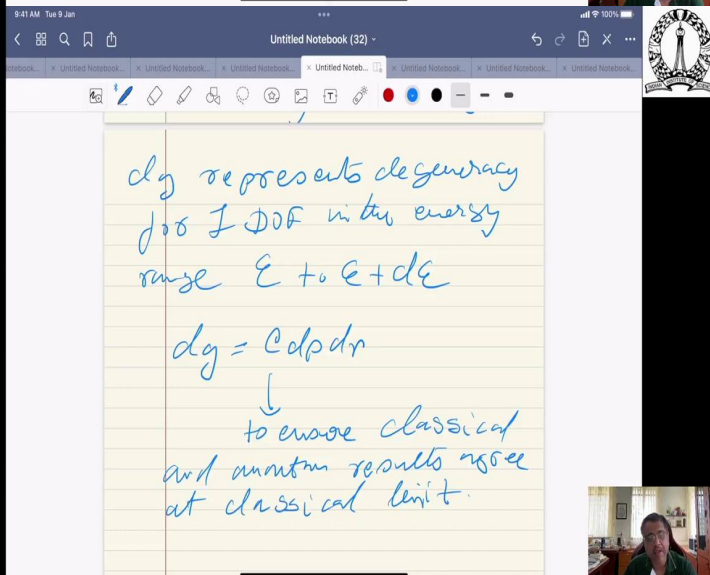 9:41 AM Tue 9 Jan
100%
Untitled Notebook (32)
otebook... × Untitled Notebook... × Untitled Notebook... × Untitled Notebook... × Untitled Noteb... × Untitled Notebook... × Untitled Notebook... × Untitled Notebook...
dg represents degeneracy
for 1 DOF in the energy
range ε to ε + dε
dg = C dp dr
↓
to ensure classical
and quantum results agree
at classical limit.